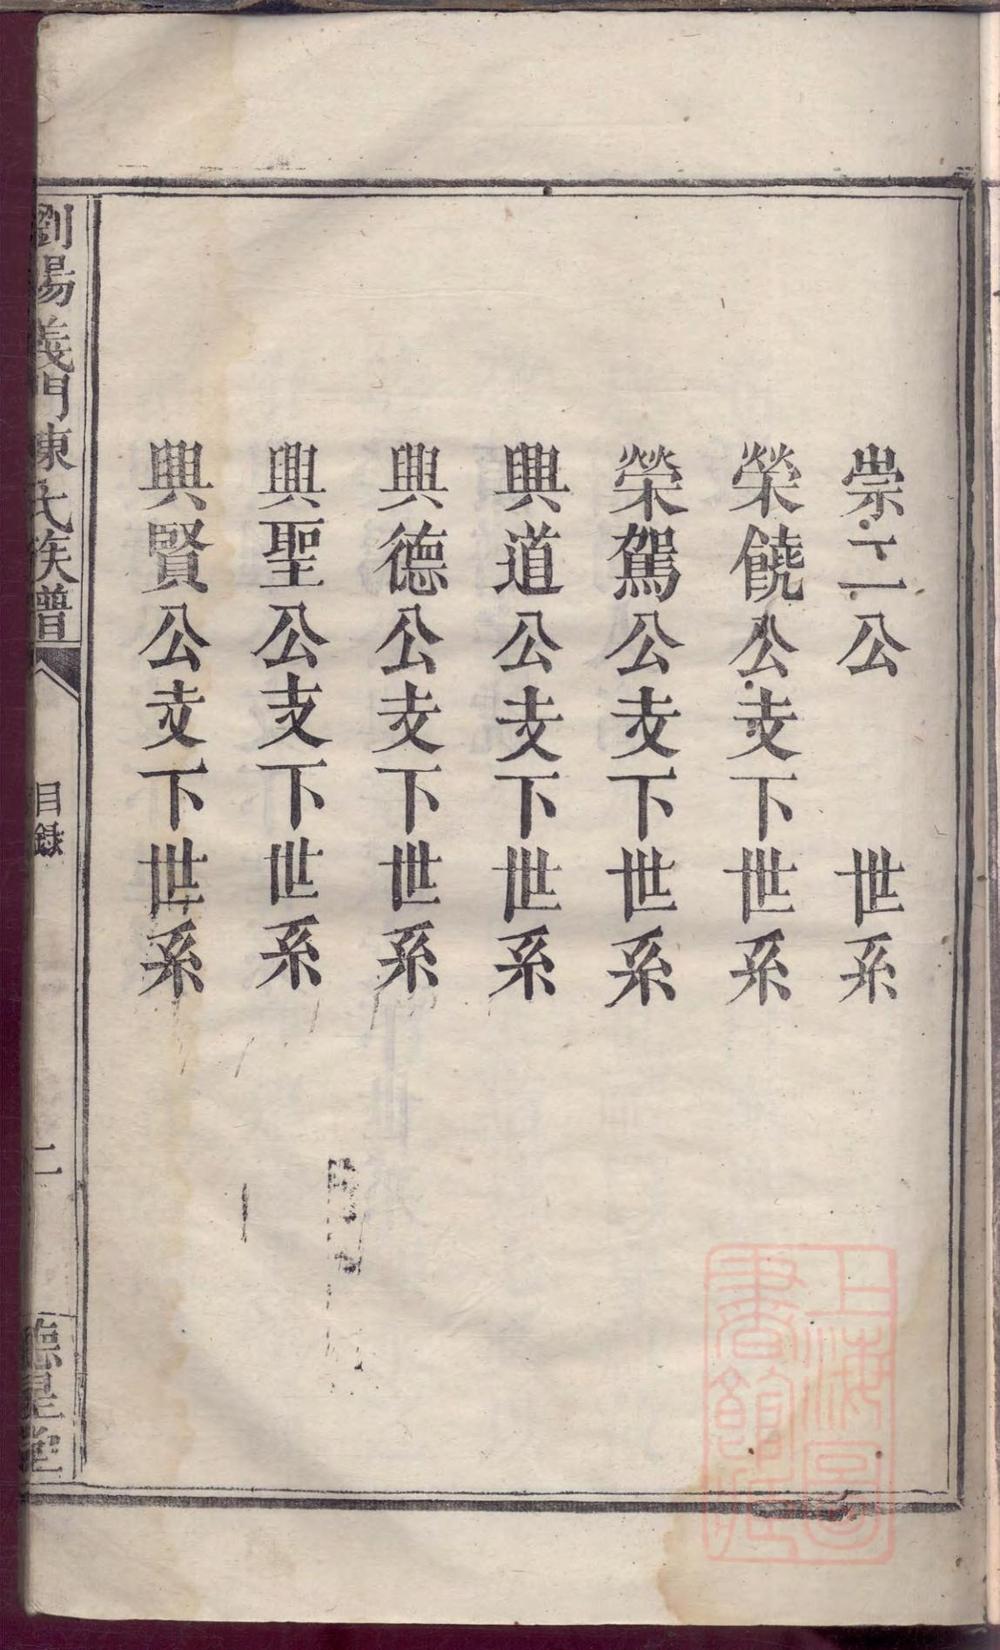 崇二公 世系
榮饒公支下世系
榮駕公支下世系
興道公支下世系
興德公支下世系
興聖公支下世系
興賢公支下世系
劉陽義門陳氏族譜
目錄
二
德星堂
上海圖
書館藏